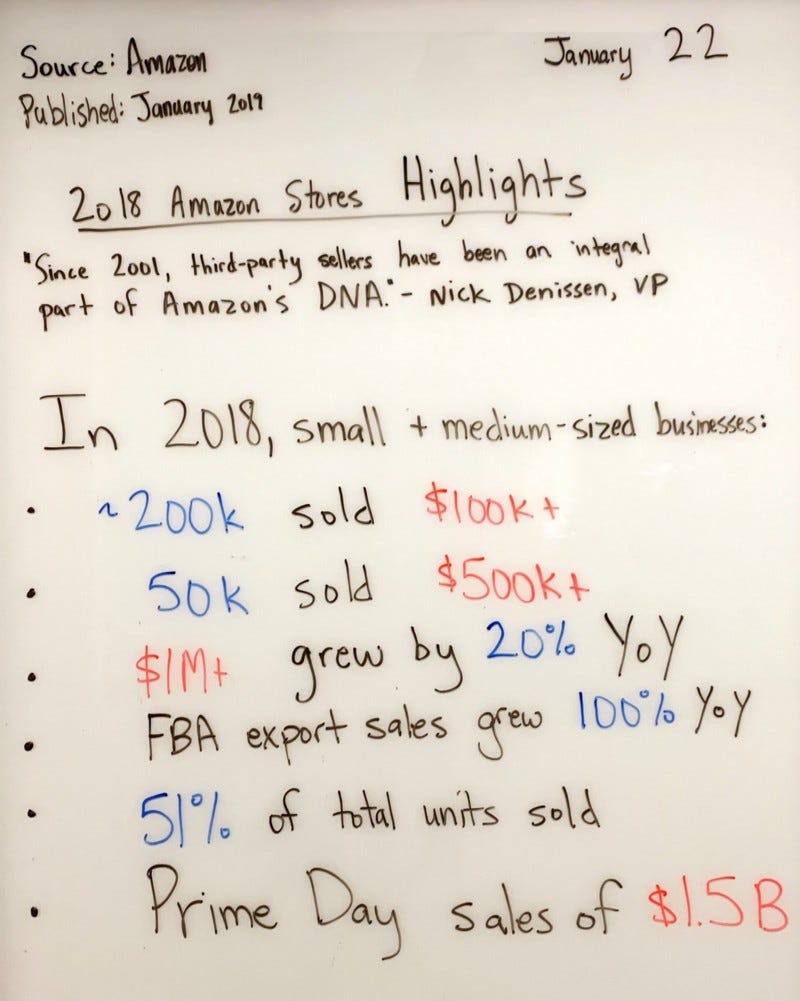 Source: Amazon
January 22
Published: January 2019
2018 Amazon Stores Highlights
"Since 2001, third-party sellers have been an integral
part of Amazon's DNA." - Nick Denissen, VP
In 2018, small + medium-sized businesses:
• ~200k sold $100k+
• 50k sold $500k+
• $1M+ grew by 20% YoY
• FBA export sales grew 100% YoY
• 51% of total units sold
• Prime Day sales of $1.5B